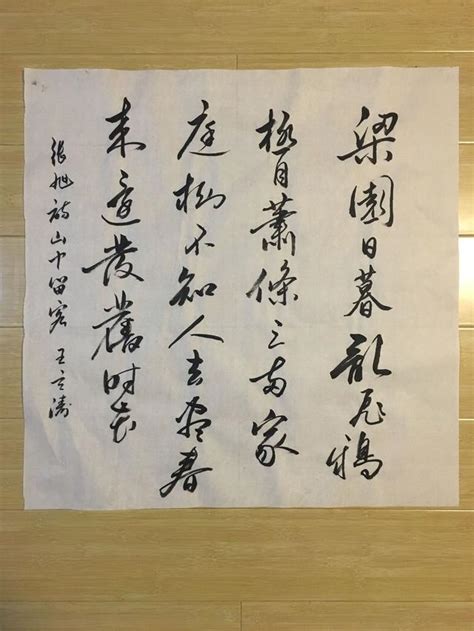 梁園日暮亂飛鴉
極目蕭條三兩家
庭樹不知人去盡春
来還發舊時花
張旭詩山中留客 王立濤